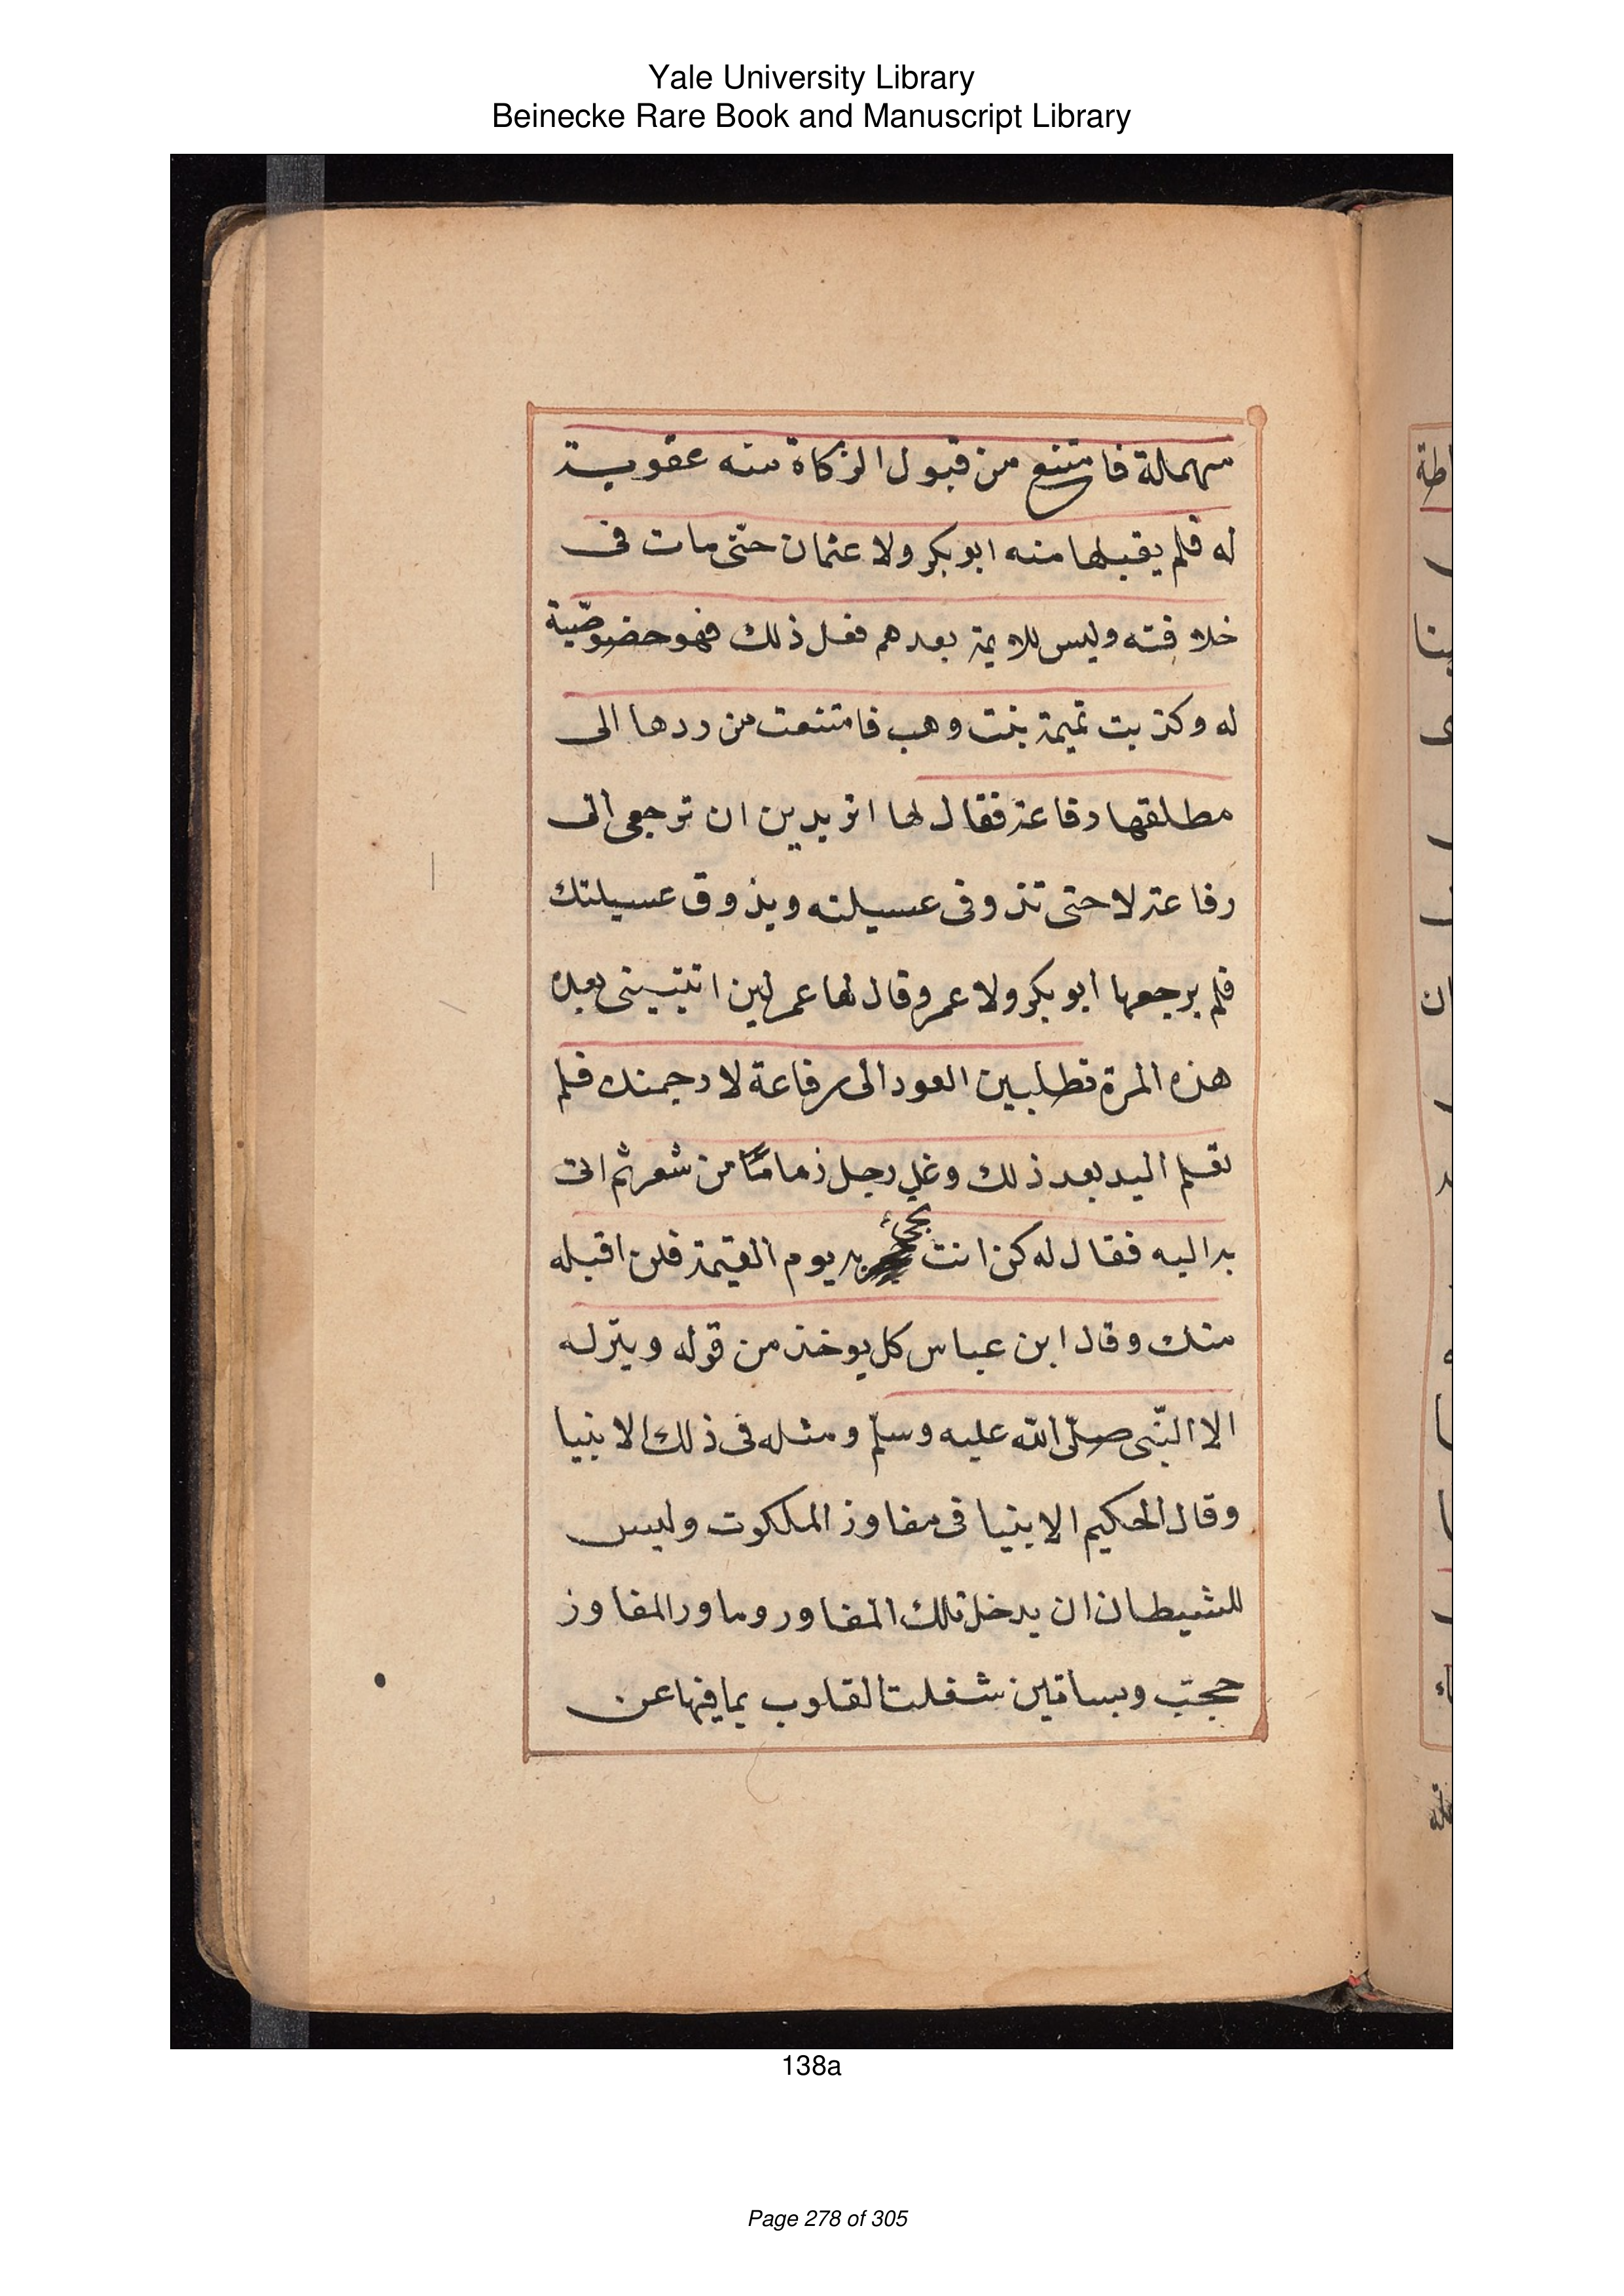 Yale University Library
Beinecke Rare Book and Manuscript Library
فامتنع من قبول الزكاة منه عقوبة
له فلم يقبلها منه ابوبكر ولا عثمان حتّى مات فى
خلافته وليس للايمة بعدهم فعل ذلك فهو خصوصّية
له وكذبت تميمة بنت وهب فامتنعت من ردها الى
مطلقها رفاعة فقال لها اتريدين ان ترجعى الى
رفاعة لا حتى تذوقى عسيلته ويذوق عسيلتك
فلم يرجعها ابو بكر ولا عمر وقال لها عمر لين اتيتينى بعد
هذه المرة تطلبين العود الى رفاعة لارجمنك فلم
بعد ذلك وغل رجل زماما من شعر ثم اتى
به اليه فقال له كن انت تجئ به يوم القيمة فلن اقبله
منك وقال ابن عباس كل يوخذ من قوله ويترك
الا النّبى صلّى الله عليه وسلّم ومثله فى ذلك الانبيا
وقال الحكيم الانبيا فى مفاوز الملكوت وليس
للشيطان ان يدخل تلك المفاوز وما ور المفاوز
حجب وبساتين شغلت القلوب بما فيها عن
138a
Page 278 of 305